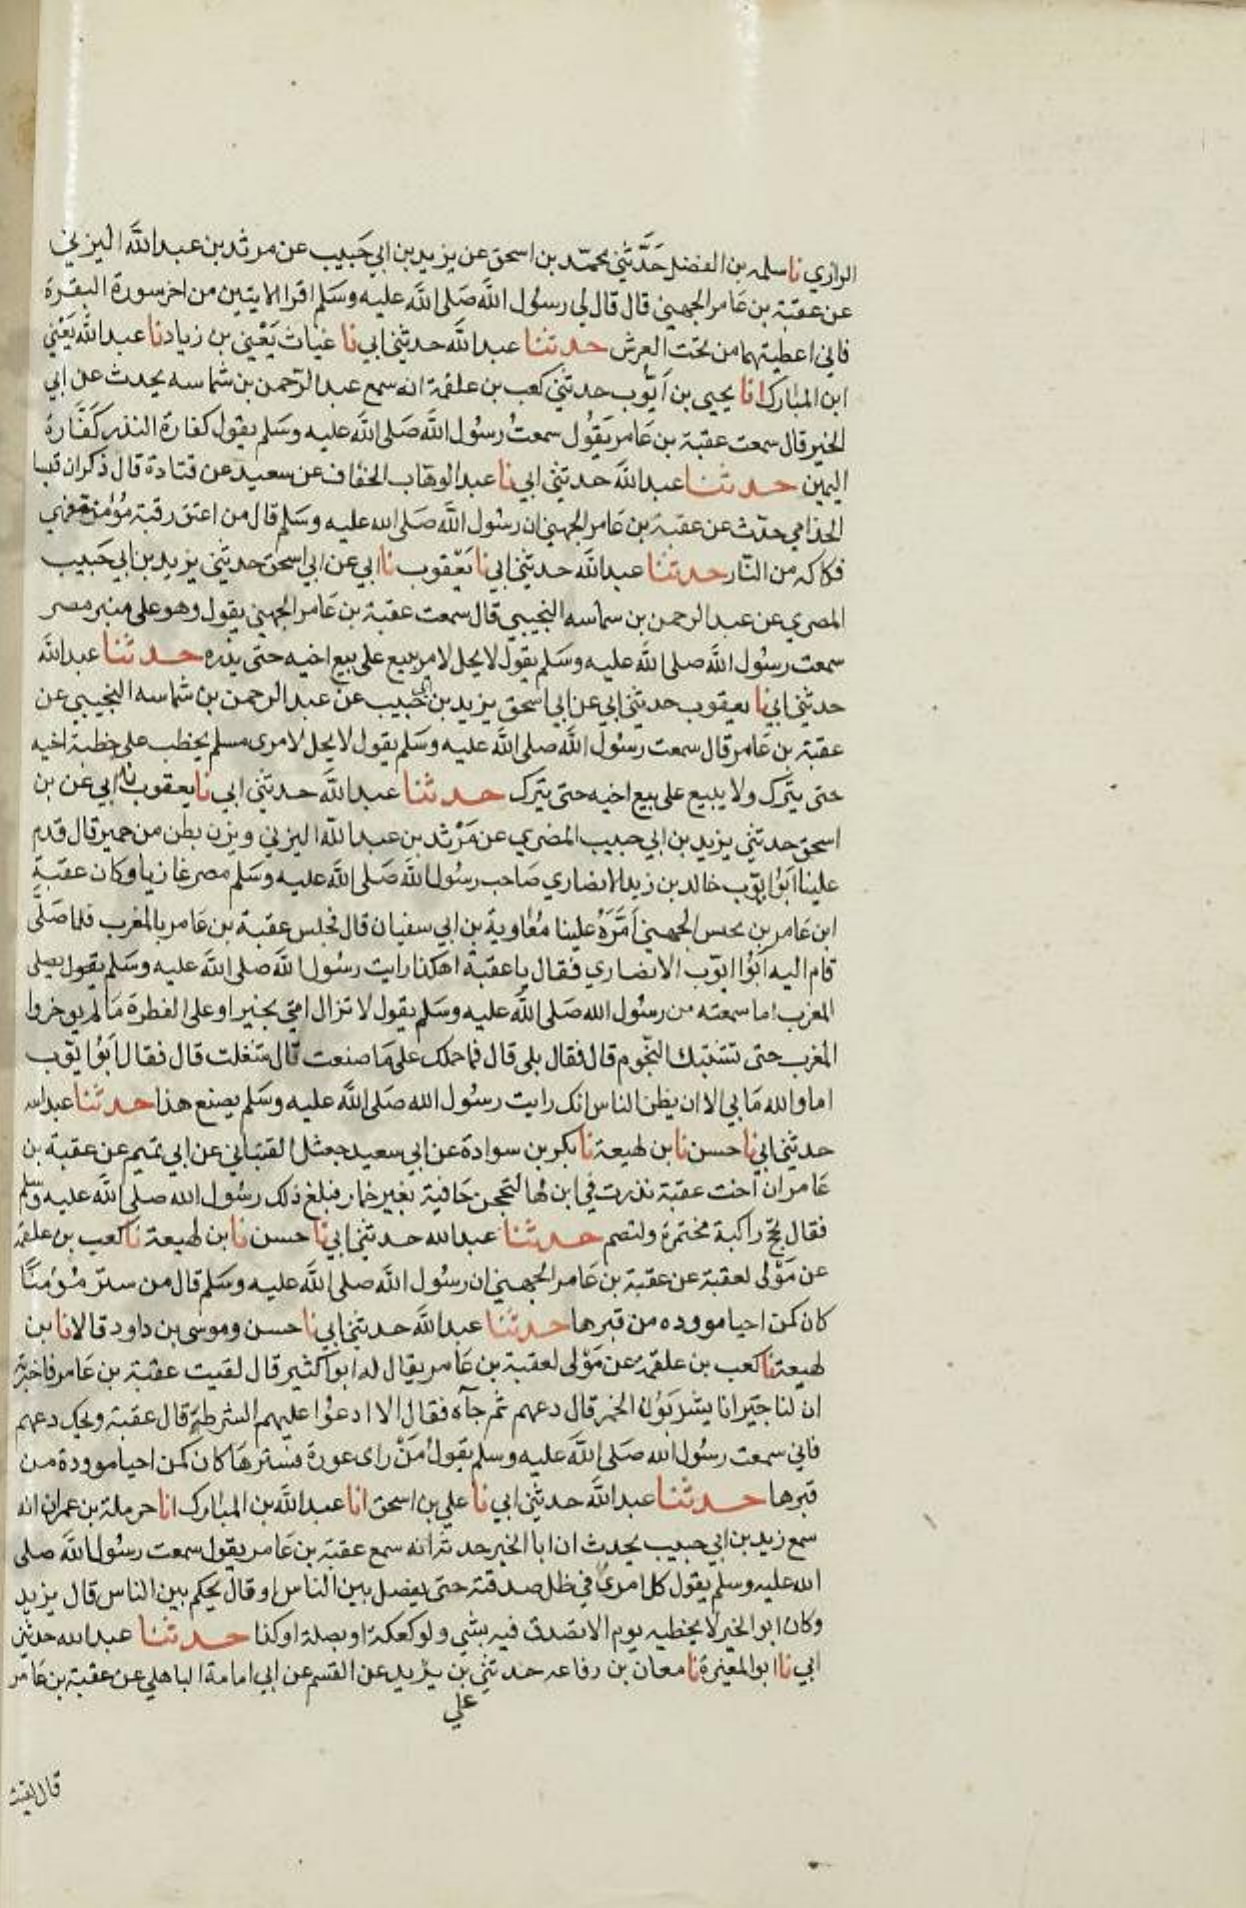 الرازي نا سلمه بن الفضل حَدَّثني محمّد بن اسحق عن يزيد بن ابي حَبيب عن مرثد بن عبد اللَّه اليزني
عن عقبة بن عَامر الجهني قال قال لي رسُول اللَّه صَلى اللَّه عليه وسَلم اقرا الايتين من اخر سورة البقرة
فاني اعطيتهما من تحت العرش حدثنا عبد اللَّه حدثني ابي نا غياث يَعْني بن زياد نا عبد اللَّه يَعْني
ابن المبارك انا يحيى بن أيّوب حدثني كعب بن علقمة انه سمع عبد الرّحمن بن شماسه يحدث عن ابي
الخير قال سمعت عقبة بن عَامر يَقُول سمعتُ رسُول اللَّه صَلى اللَّه عليه وسَلم يقول كفارة النذر كَفَّارة
اليمين حدثنا عبد اللَّه حدثني ابي نا عبد الوهاب الخفاف عن سعيد عن قتادة قال ذكر ان قيسا
الجذامي حدّث عن عقبة بن عَامر الجهني ان رسُول اللَّه صَلى الله عليه وسَلم قال من اعتق رقبة مؤمنة فهي
فكاكه من النّار حدثنا عبد اللَّه حدثني ابي نا يَعْقوب نا ابي عن ابي اسحق حدثني يزيد بن ابي حَبيب
المصري عن عبد الرحمن بن سماسه التجيبي قال سمعت عقبة بن عَامر الجهني يقول وهو على منبر مصر
سمعت رسُول اللَّه صلى اللَّه عليه وسَلم يقول لا يحل لامر يبيع على بيع اخيه حتى يذره حدثنا عبد اللَّه
حدثني ابي نا يعقوب حدثني ابي عن ابي اسحق يزيد بن ابي حَبيب عن عبد الرحمن بن شماسه التجيبي عن
عقبة بن عَامر قال سمعت رسُول اللَّه صلى اللَّه عليه وسَلم يقول لا يحل لامرى مسلم يخطب على خطبة اخيه
حتى يترك ولا يبيع على بيع اخيه حتى يترك حدثنا عبد اللَّه حدثني ابي نا يعقوب نا ابي عن بن
اسحق حدثني يزيد بن ابي حبيب المصري عن مَرْثد بن عبد اللَّه اليزني ويزن بطن من حمير قال قدم
علينا ابُو ايوّب خالد بن زيد الانصاري صَاحب رسُول اللَّه صَلى اللَّه عليه وسَلم مصر غازيا وكان عقبة
ابن عَامر بن عبس الجهني اَمَّرَهُ علينا مُعَاوية بن ابي سفيان قال فحبس عقبة بن عَامر بالمغرب فلما صَلّى
قام اليه ابُو ايوّب الانصاري فقال يا عقبة اهكذا رايت رسُول اللَّه صلى اللَّه عليه وسَلم يقول يصلي
المغرب اما سمعته من رسُول الله صَلى اللَّه عليه وسَلم يقول لا تزال امتي بخير او على الفطرة مَا لم يوخروا
المغرب حتى تشتبك النجوم قال فقال بلى قال فما حملك على مَا صنعت قال شغلت قال فقال ابُو ايوّب
اما والله مَا بي الا ان يظن الناس انك رايت رسُول الله صَلى اللَّه عليه وسَلم يصنع هذا حدثنا عبد الله
حدثني ابي نا حسن نا بن لهيعة نا بكر بن سوادة عن ابي سعيد جعثل القتباني عن ابي تميم عن عقبة بن
عَامر ان اخت عقبة نذرت في ابن لها لتحجن حَافية بغير خمار فبلغ ذلك رسُول الله صلى اللَّه عليه وسلم
فقال تحج راكبة مختمرة ولتصم حدثنا عبد الله حدثني ابي نا حسن نا بن لهيعة نا كعب بن علقمة
عن مَوْلى لعقبة عن عقبة بن عَامر الجهني ان رسُول اللَّه صلى اللَّه عليه وسَلم قال من ستر مُؤمنًا
كان كمن احيا مووده من قبرها حدثنا عبد اللَّه حدثني ابي نا حسن وموسى بن داود قالا نا بن
لهيعة نا كعب بن علقمة عن مَوْلى لعقبة بن عَامر يقال له ابو كثير قال لقيت عقبة بن عَامر فاخبرته
ان لنا جيرانا يشربُون الخمر قال دعهم ثم جآه فقال الا ادعُوا عليهم الشرطة قال عقبة ويحك دعهم
فاني سمعت رسُول الله صَلى اللَّه عليه وسلم يقولُ مَنْ راى عورة فسترهَا كان كمن احيا موودة من
قبرها حدثنا عبد اللَّه حدثني ابي نا علي بن اسحق انا عبد اللَّه بن المبارك انا حرملة بن عمران انه
سمع زيد بن ابي حبيب يحدث ان ابا الخير حدثه انه سمع عقبة بن عَامر يقول سمعت رسُول اللَّه صلى
الله عليه وسلم يقول كل امرئ في ظل صدقته حتى يفصل بين الناس او قال يحكم بين الناس قال يزيد
وكان ابو الخير لا يخطيه يوم الا تصدق فيه بشي ولو كعكة او بصلة او كذا حدثنا عبد الله حدثني
ابي نا ابو المغيرة نا معان بن رفاعه حدثني بن يزيد عن القسم عن ابي امامة الباهلي عن عقبة بن عَامر
علي
قال لقيت